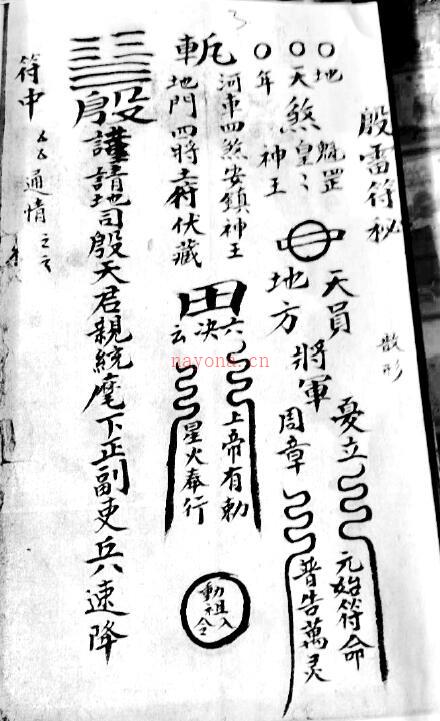 殷雷符秘
散形
○地魁罡
○天煞皇〻
○年神王
天員
地方
將軍
憂立
周章
元始符命
普告萬灵
河車四煞安鎮神王
地門四將土府伏藏
田
六决云
上帝有勅
星火奉行
動祖入令
殷
謹請地司殷天君親統麾下正副吏兵速降
符中
通情
3
nayona.cn